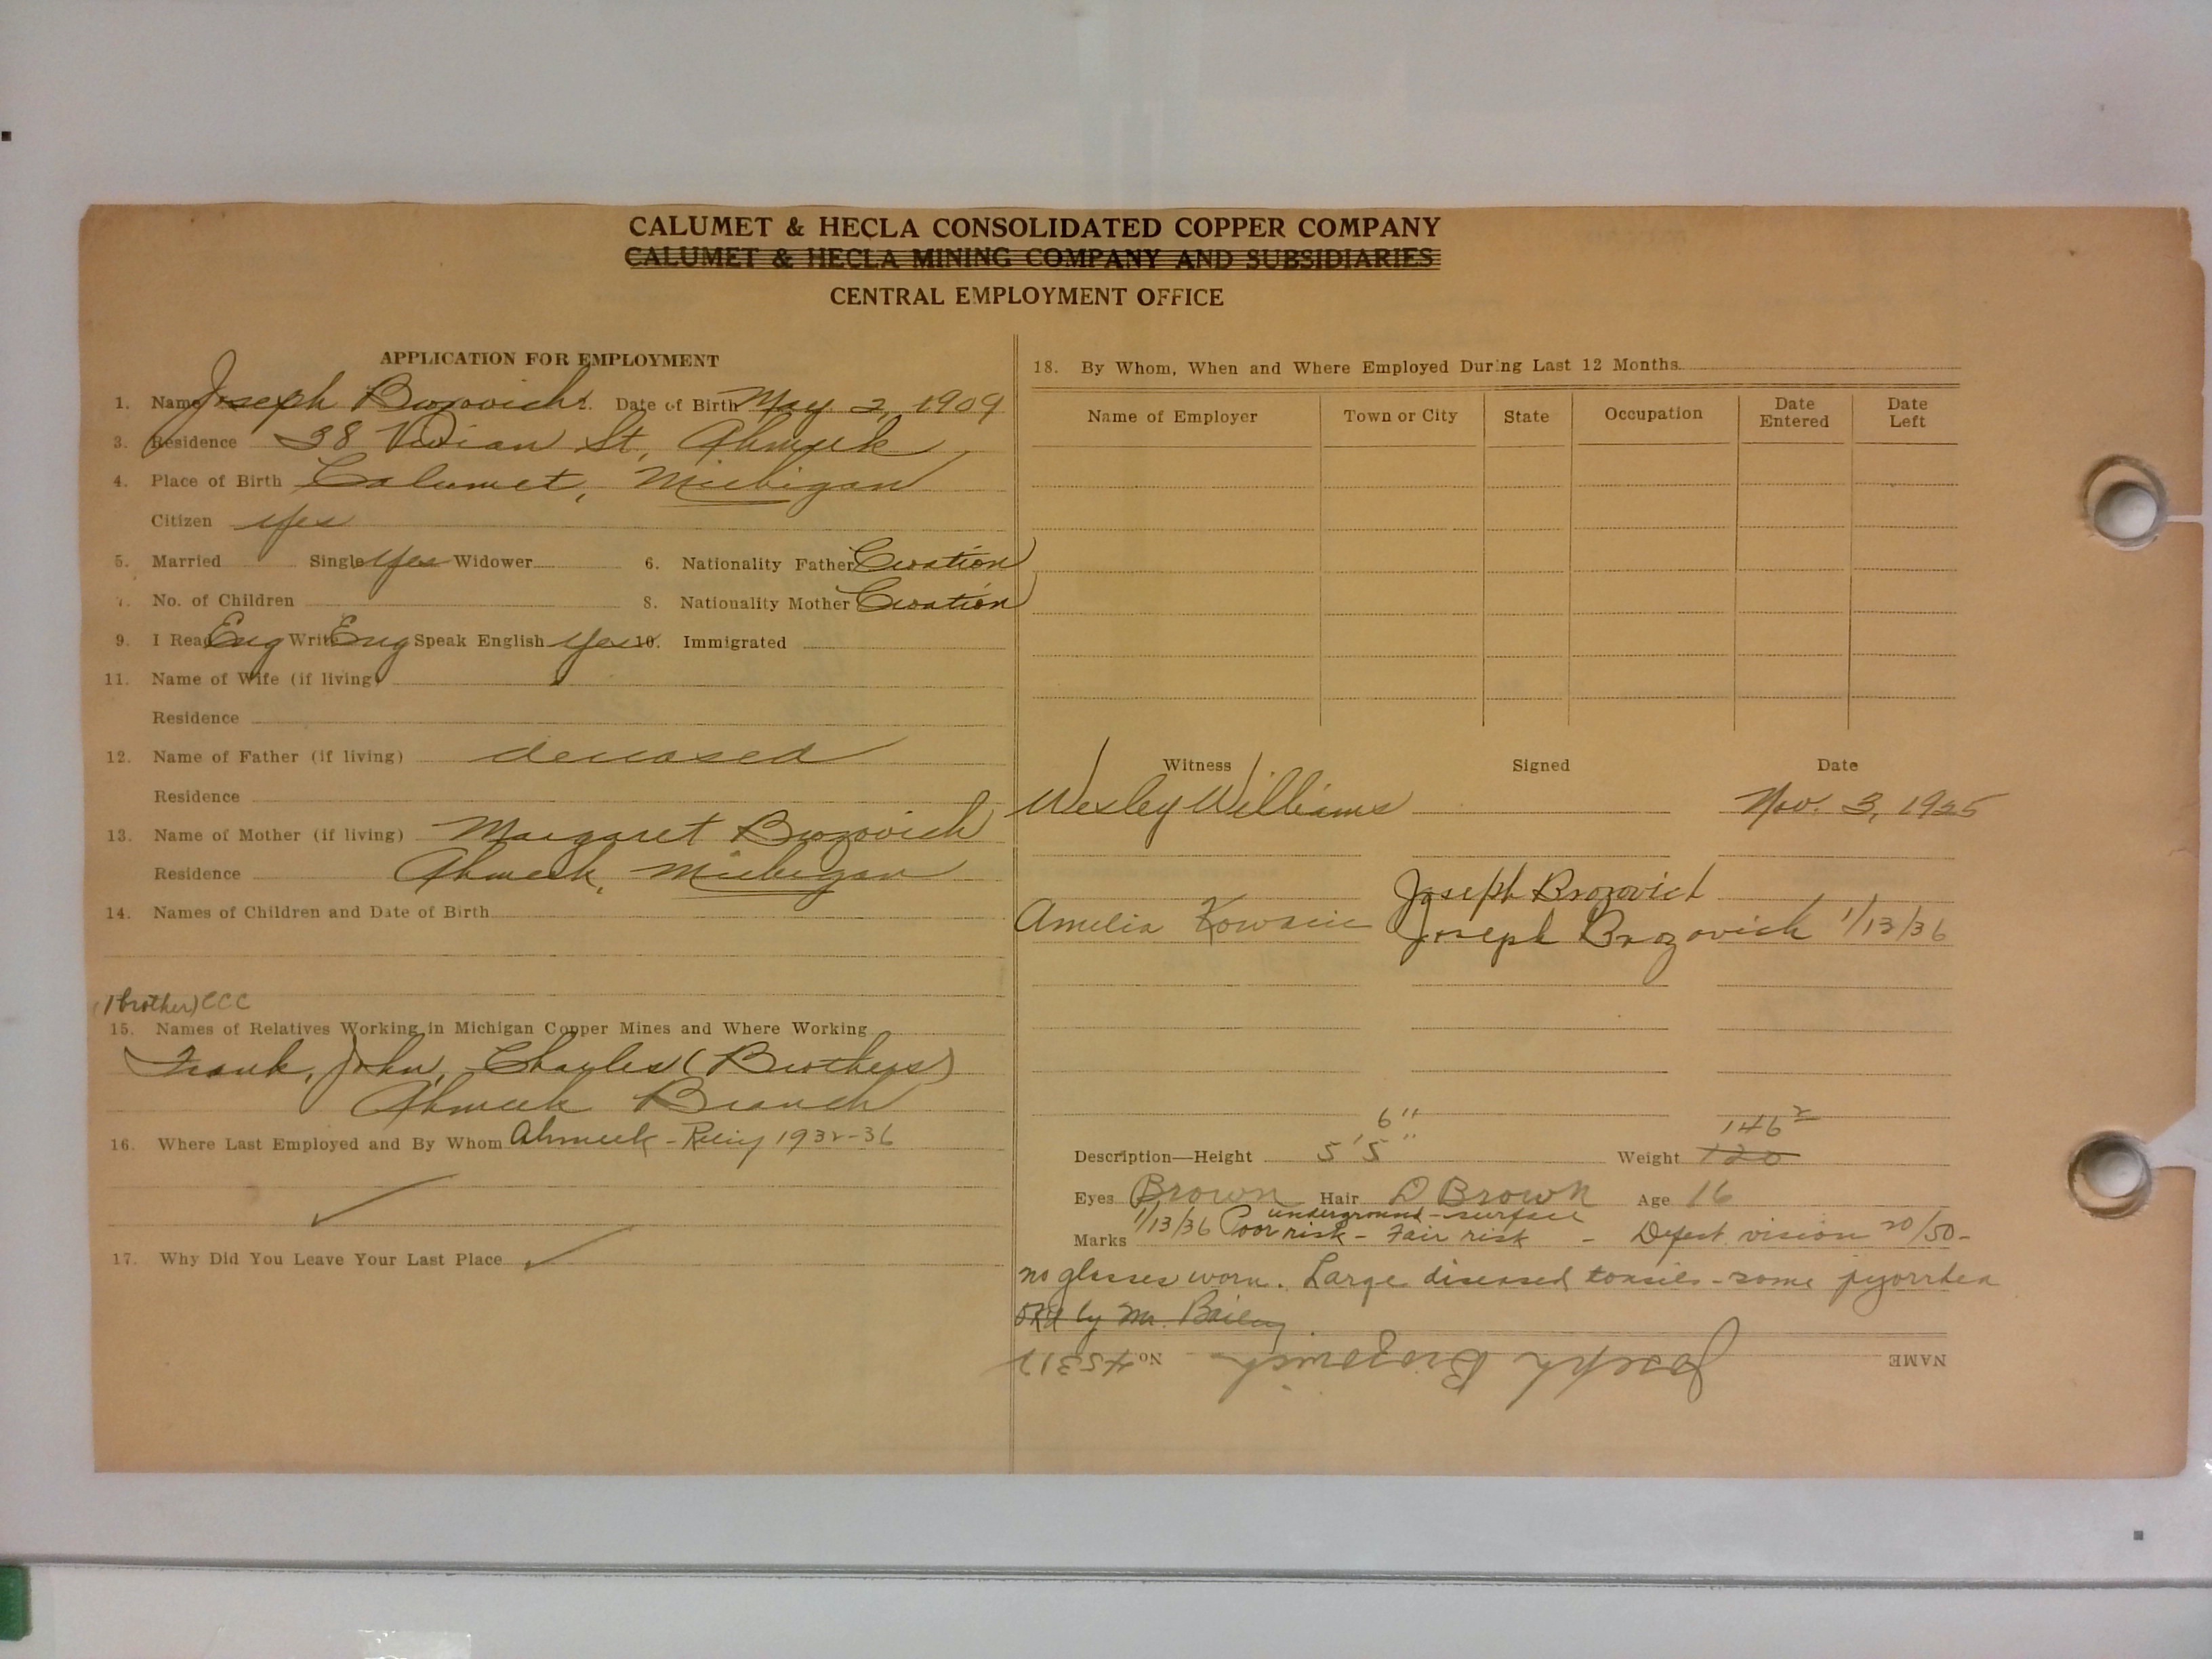 CALUMET & HECLA CONSOLIDATED COPPER COMPANY
CALUMET & HECLA MINING COMPANY AND SUBSIDIARIES
CENTRAL EMPLOYMENT OFFICE
APPLICATION FOR EMPLOYMENT
1. Name Joseph Brozovich 2. Date of Birth May 2, 1909
3. Residence 38 Vivian St, Ahmeek
4. Place of Birth Calumet, Michigan
Citizen yes
5. Married Single yes Widower 6. Nationality Father Croation
7. No. of Children 8. Nationality Mother Croation
9. I Read Eng Write Eng Speak English yes 10. Immigrated
11. Name of Wife (if living)
Residence
12. Name of Father (if living) deceased
Residence
13. Name of Mother (if living) Margaret Brozovich
Residence Ahmeek, Michigan
14. Names of Children and Date of Birth
(1 brother) CCC
15. Names of Relatives Working in Michigan Copper Mines and Where Working
Frank, John, Charles (Brothers)
Ahmeek Branch
16. Where Last Employed and By Whom Ahmeek - 1932-36
17. Why Did You Leave Your Last Place
18. By Whom, When and Where Employed During Last 12 Months
Name of Employer Town or City State Occupation Date Entered Date Left
Witness Signed Date
Wesley Williams Nov. 3, 1925
Joseph Brozovich
Amelia Joseph Brozovich 1/13/36
6" 146 2
Description—Height 5'5" Weight 120
Eyes Brown Hair D Brown Age 16
underground - surface
Marks 1/13/36 Poor risk - Fair risk - Defect. vision 20/50-
no glasses worn. Large diseased tonsils - some pyorrhea
OKd by Mr. Bailey
NAME Joseph Brozovich No 45317